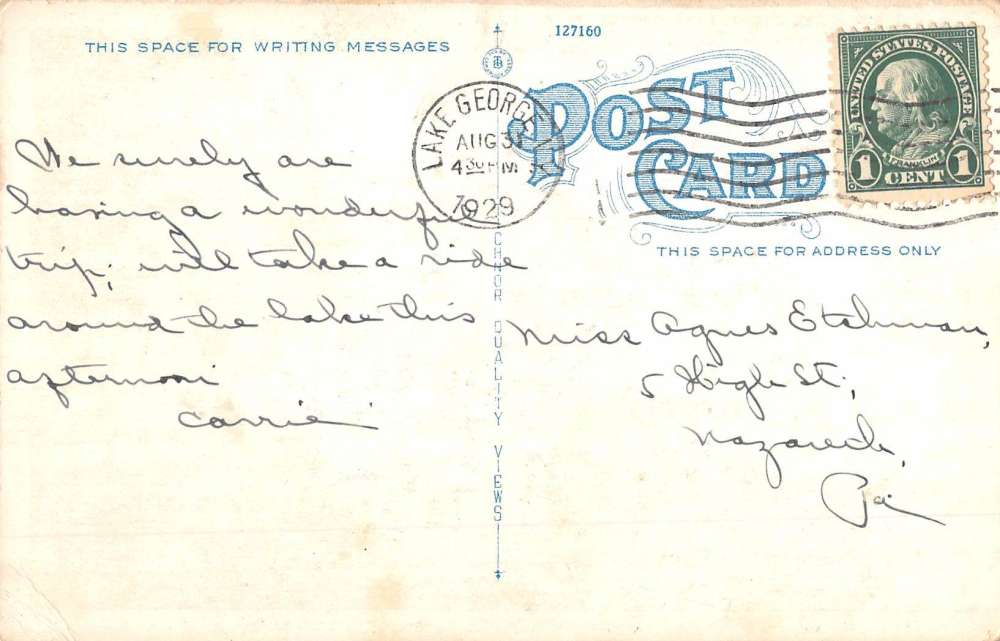 THIS SPACE FOR WRITING MESSAGES
127160
POST CARD
LAKE GEORGE
AUG 31
4 30 PM
1929
UNITED STATES POSTAGE
FRANKLIN
1 CENT 1
THIS SPACE FOR ADDRESS ONLY
We surely are
having a wonderful
trip; will take a ride
around the lake this
afternoon
Carrie
QUALITY VIEWS
Miss Agnes
5 High St.,
Nazareth,
Pa